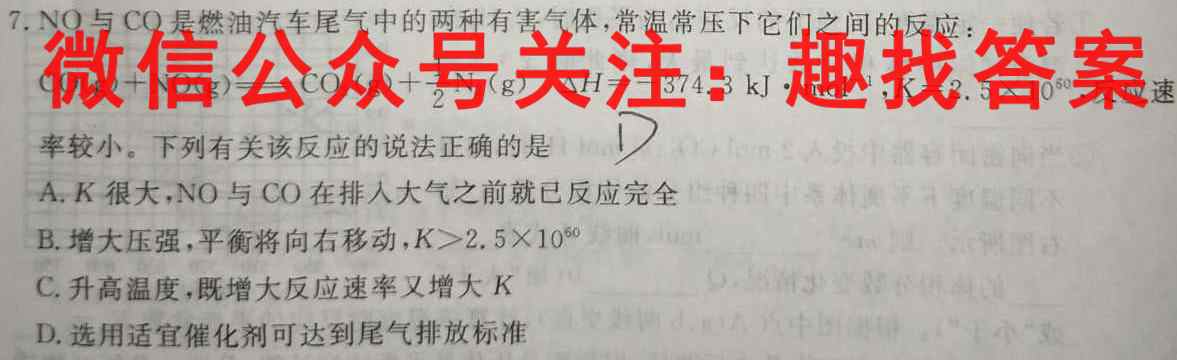 7. NO 与 CO 是燃油汽车尾气中的两种有害气体,常温常压下它们之间的反应:
微信公众号关注:趣找答案
CO(g)+NO(g) CO (g)+1/2 N (g) ΔH=-374.3 kJ·mol⁻¹,K=2.5×10⁶⁰,反应速
率较小。下列有关该反应的说法正确的是 D
A. K 很大,NO 与 CO 在排入大气之前就已反应完全
B. 增大压强,平衡将向右移动,K>2.5×10⁶⁰
C. 升高温度,既增大反应速率又增大 K
D. 选用适宜催化剂可达到尾气排放标准